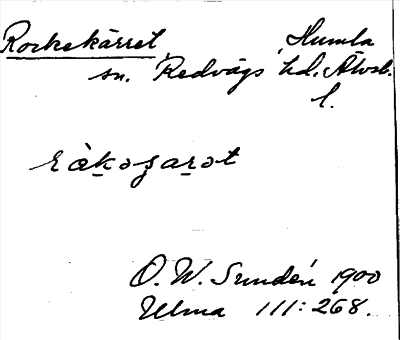 Rockekärret, Humla
sn. Redvägs hd. Älvsb.
l.
O. W. Sundén 1900
Ulma 111:268.